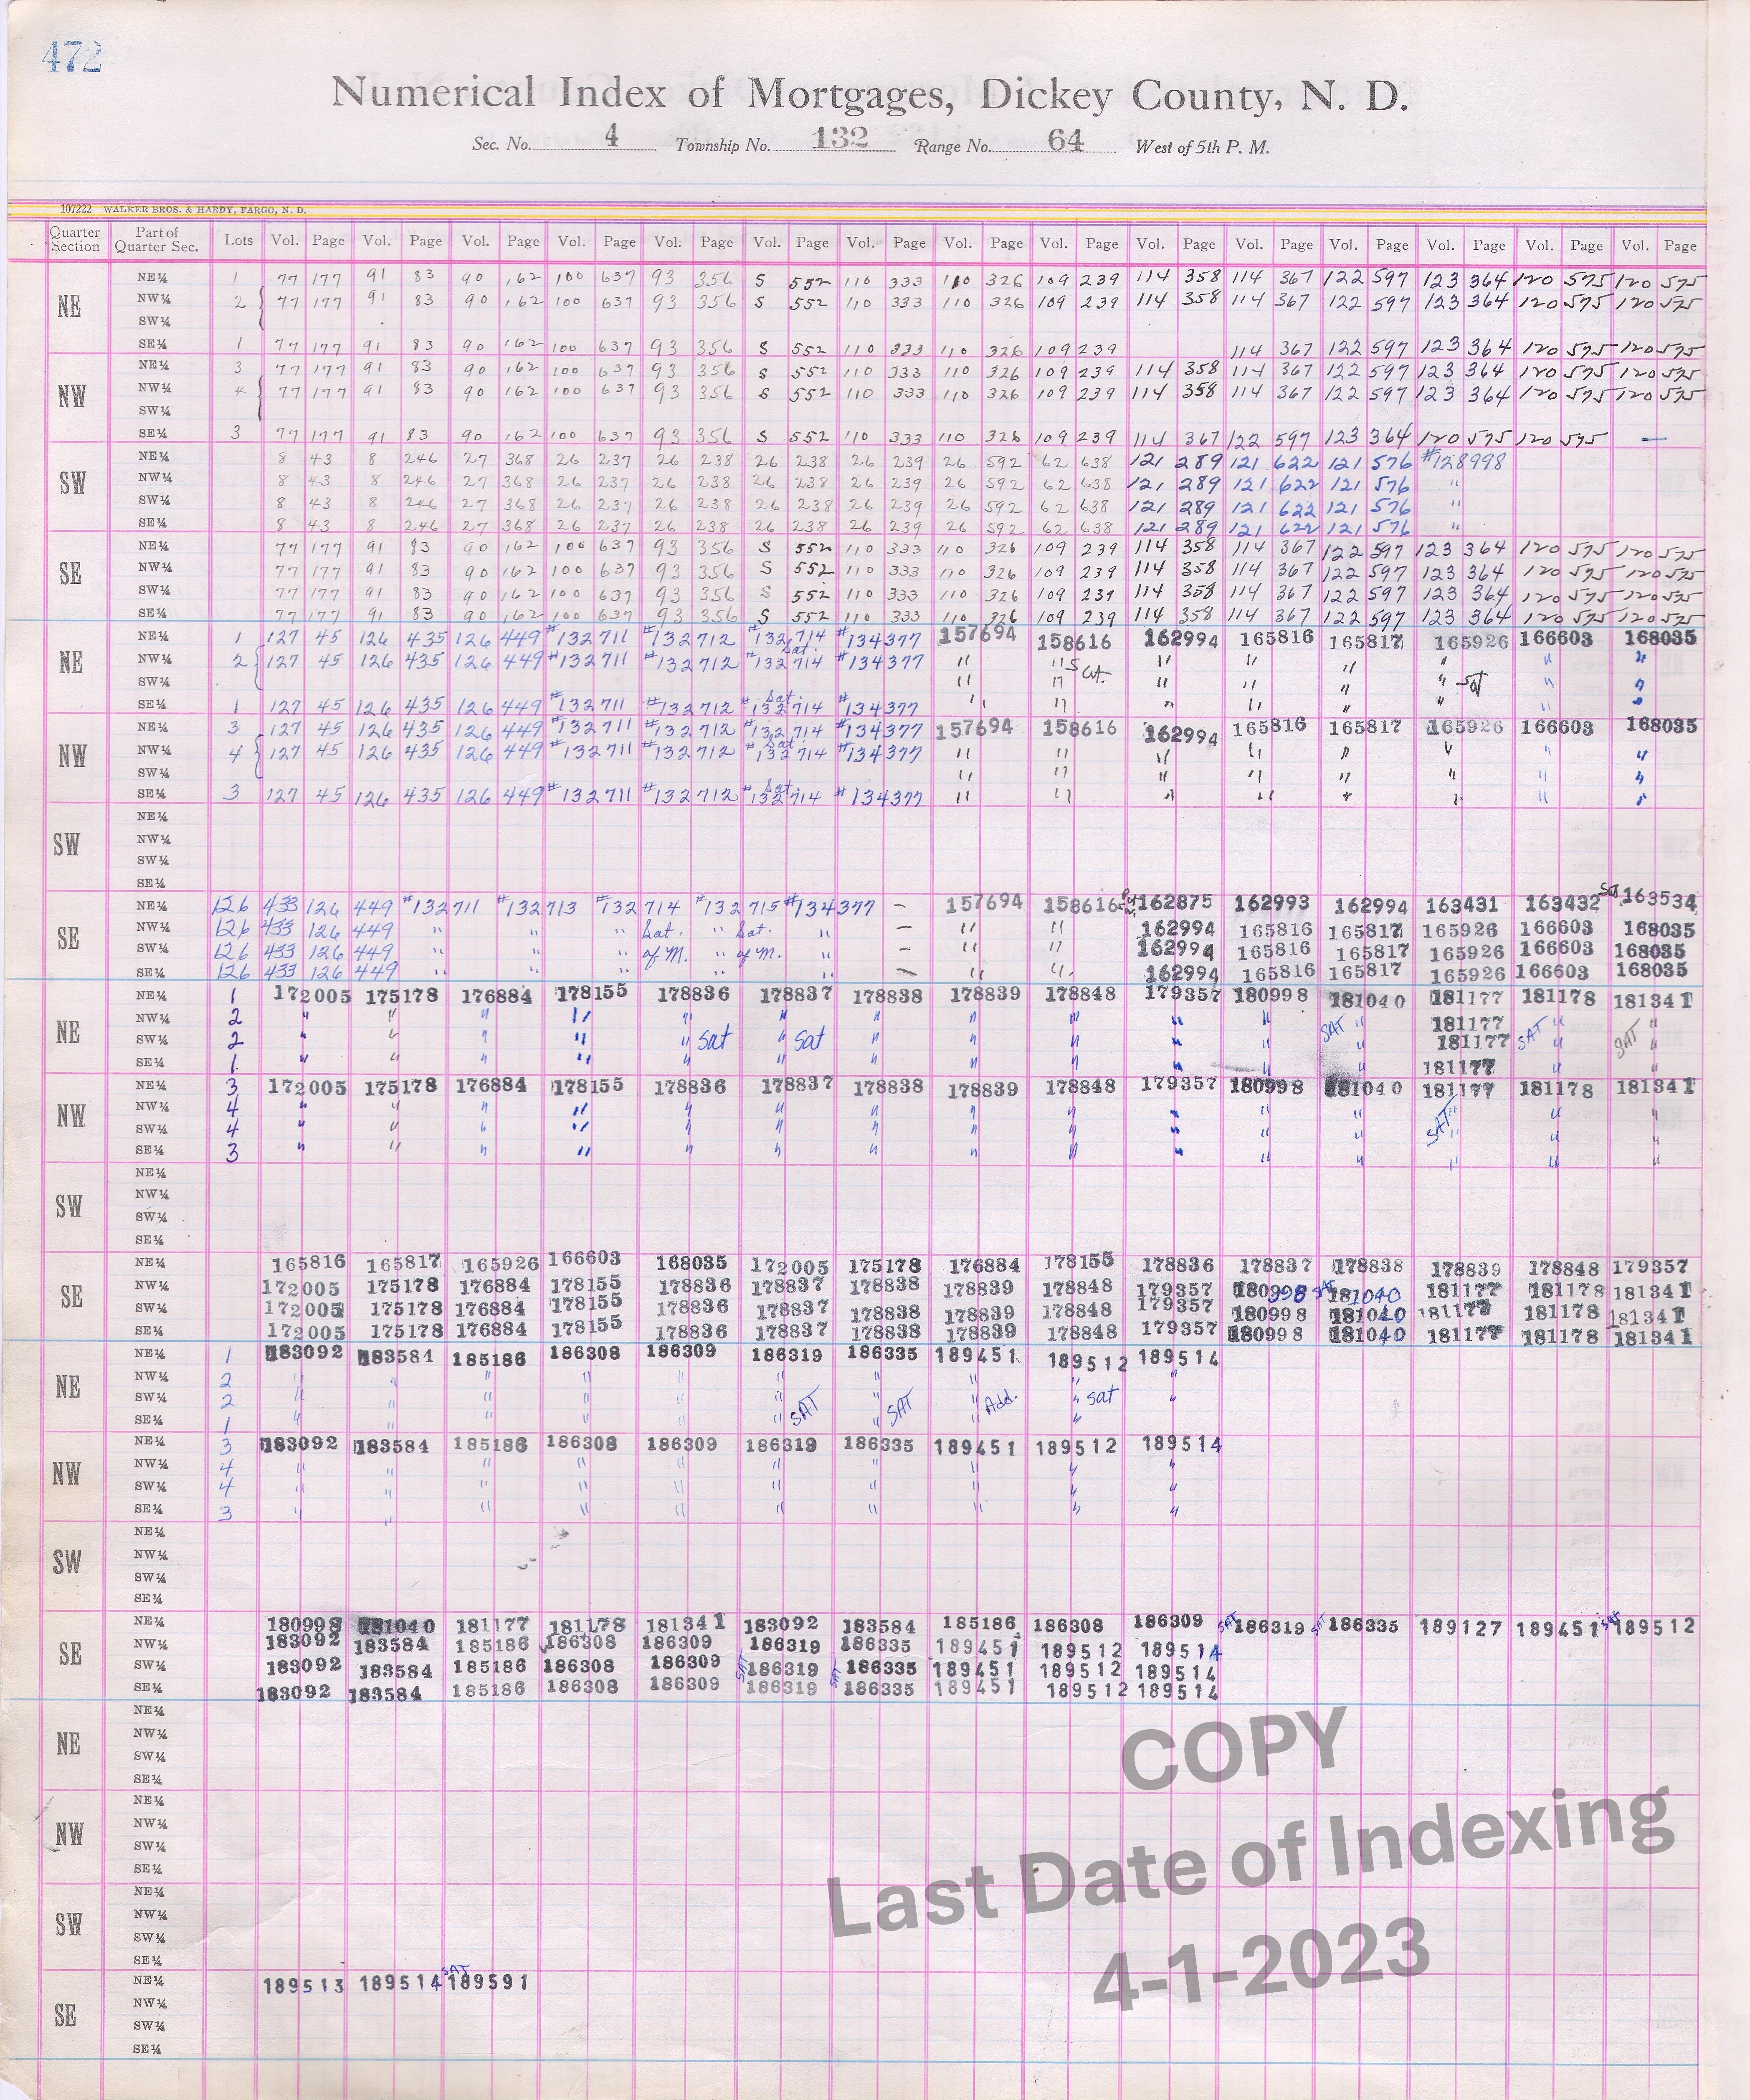 472
Numerical Index of Mortgages, Dickey County, N. D.
Sec. No. 4 Township No. 132 Range No. 64 West of 5th P. M.
107222 WALKER BROS. & HARDY, FARGO, N. D.
Quarter Section Part of Quarter Sec. Lots Vol. Page Vol. Page Vol. Page Vol. Page Vol. Page Vol. Page Vol. Page Vol. Page Vol. Page Vol. Page Vol. Page Vol. Page Vol. Page Vol. Page Vol. Page
NE
NE¼ 1 77 177 91 83 90 162 100 637 93 356 S 552 110 333 110 326 109 239 114 358 114 367 122 597 123 364 120 575 120 575
NW¼ 2 77 177 91 83 90 162 100 637 93 356 S 552 110 333 110 326 109 239 114 358 114 367 122 597 123 364 120 575 120 575
SW¼
SE¼ 1 77 177 91 83 90 162 100 637 93 356 S 552 110 333 110 326 109 239 114 367 122 597 123 364 120 575 120 575
NW
NE¼ 3 77 177 91 83 90 162 100 637 93 356 S 552 110 333 110 326 109 239 114 358 114 367 122 597 123 364 120 575 120 575
NW¼ 4 77 177 91 83 90 162 100 637 93 356 S 552 110 333 110 326 109 239 114 358 114 367 122 597 123 364 120 575 120 575
SW¼
SE¼ 3 77 177 91 83 90 162 100 637 93 356 S 552 110 333 110 326 109 239 114 367 122 597 123 364 120 575 120 575 —
SW
NE¼ 8 43 8 246 27 368 26 237 26 238 26 238 26 239 26 592 62 638 121 289 121 622 121 576 #128998
NW¼ 8 43 8 246 27 368 26 237 26 238 26 238 26 239 26 592 62 638 121 289 121 622 121 576 "
SW¼ 8 43 8 246 27 368 26 237 26 238 26 238 26 239 26 592 62 638 121 289 121 622 121 576 "
SE¼ 8 43 8 246 27 368 26 237 26 238 26 238 26 239 26 592 62 638 121 289 121 622 121 576 "
SE
NE¼ 77 177 91 83 90 162 100 637 93 356 S 552 110 333 110 326 109 239 114 358 114 367 122 597 123 364 120 575 120 575
NW¼ 77 177 91 83 90 162 100 637 93 356 S 552 110 333 110 326 109 239 114 358 114 367 122 597 123 364 120 575 120 575
SW¼ 77 177 91 83 90 162 100 637 93 356 S 552 110 333 110 326 109 239 114 358 114 367 122 597 123 364 120 575 120 575
SE¼ 77 177 91 83 90 162 100 637 93 356 S 552 110 333 110 326 109 239 114 358 114 367 122 597 123 364 120 575 120 575
NE
NE¼ 1 127 45 126 435 126 449 #132711 #132712 #132714 #134377 157694 158616 162994 165816 165817 165926 166603 168035
NW¼ 2 127 45 126 435 126 449 #132711 #132712 Sat. #132714 #134377 " " Sat. " " " " " "
SW¼ " " " " " " Sat " "
SE¼ 1 127 45 126 435 126 449 #132711 #132712 Sat. #132714 #134377 " " " " " " " "
NW
NE¼ 3 127 45 126 435 126 449 #132711 #132712 #132714 #134377 157694 158616 162994 165816 165817 165926 166603 168035
NW¼ 4 127 45 126 435 126 449 #132711 #132712 Sat. #132714 #134377 " " " " " " " "
SW¼ " " " " " " " "
SE¼ 3 127 45 126 435 126 449 #132711 #132712 Sat. #132714 #134377 " " " " " " " "
SW
NE¼
NW¼
SW¼
SE¼
SE
NE¼ 126 433 126 449 #132711 #132713 #132714 #132715 #134377 — 157694 158616 162875 162993 162994 163431 163432 Sat 163534
NW¼ 126 433 126 449 " " " Sat. " Sat. " — " " 162994 165816 165817 165926 166603 168035
SW¼ 126 433 126 449 " " " of M. " of M. " " " 162994 165816 165817 165926 166603 168035
SE¼ 126 433 126 449 " " " " " — " " 162994 165816 165817 165926 166603 168035
NE
NE¼ 1 172005 175178 176884 178155 178836 178837 178838 178839 178848 179357 180998 181040 181177 181178 181341
NW¼ 2 " " " " " " " " " " " SAT " 181177 SAT " "
SW¼ 2 " " " " " Sat " Sat " " " " " " 181177 " SAT "
SE¼ 1 " " " " " " " " " " " " 181177 " "
NW
NE¼ 3 172005 175178 176884 178155 178836 178837 178838 178839 178848 179357 180998 181040 181177 181178 181341
NW¼ 4 " " " " " " " " " " " " " " "
SW¼ 4 " " " " " " " " " " " " SAT " " "
SE¼ 3 " " " " " " " " " " " " " " "
SW
NE¼
NW¼
SW¼
SE¼
SE
NE¼ 165816 165817 165926 166603 168035 172005 175178 176884 178155 178836 178837 178838 178839 178848 179357
NW¼ 172005 175178 176884 178155 178836 178837 178838 178839 178848 179357 180998 SAT 181040 181177 181178 181341
SW¼ 172005 175178 176884 178155 178836 178837 178838 178839 178848 179357 180998 181040 181177 181178 181341
SE¼ 172005 175178 176884 178155 178836 178837 178838 178839 178848 179357 180998 181040 181177 181178 181341
NE
NE¼ 1 183092 183584 185186 186308 186309 186319 186335 189451 189512 189514
NW¼ 2 " " " " " " " " " "
SW¼ 2 " " " " " " SAT " SAT " Add. " sat "
SE¼ 1 " " " " " " " " "
NW
NE¼ 3 183092 183584 185186 186308 186309 186319 186335 189451 189512 189514
NW¼ 4 " " " " " " " " " "
SW¼ 4 " " " " " " " " " "
SE¼ 3 " " " " " " " " " "
SW
NE¼
NW¼
SW¼
SE¼
SE
NE¼ 180998 181040 181177 181178 181341 183092 183584 185186 186308 186309 SAT 186319 SAT 186335 189127 189451 Sat 189512
NW¼ 183092 183584 185186 186308 186309 186319 186335 189451 189512 189514
SW¼ 183092 183584 185186 186308 186309 SAT 186319 SAT 186335 189451 189512 189514
SE¼ 183092 183584 185186 186308 186309 186319 186335 189451 189512 189514
NE
NE¼
NW¼
SW¼
SE¼
NW
NE¼
NW¼
SW¼
SE¼
SW
NE¼
NW¼
SW¼
SE¼
SE
NE¼ 189513 189514 SAT 189591
NW¼
SW¼
SE¼
COPY
Last Date of Indexing
4-1-2023